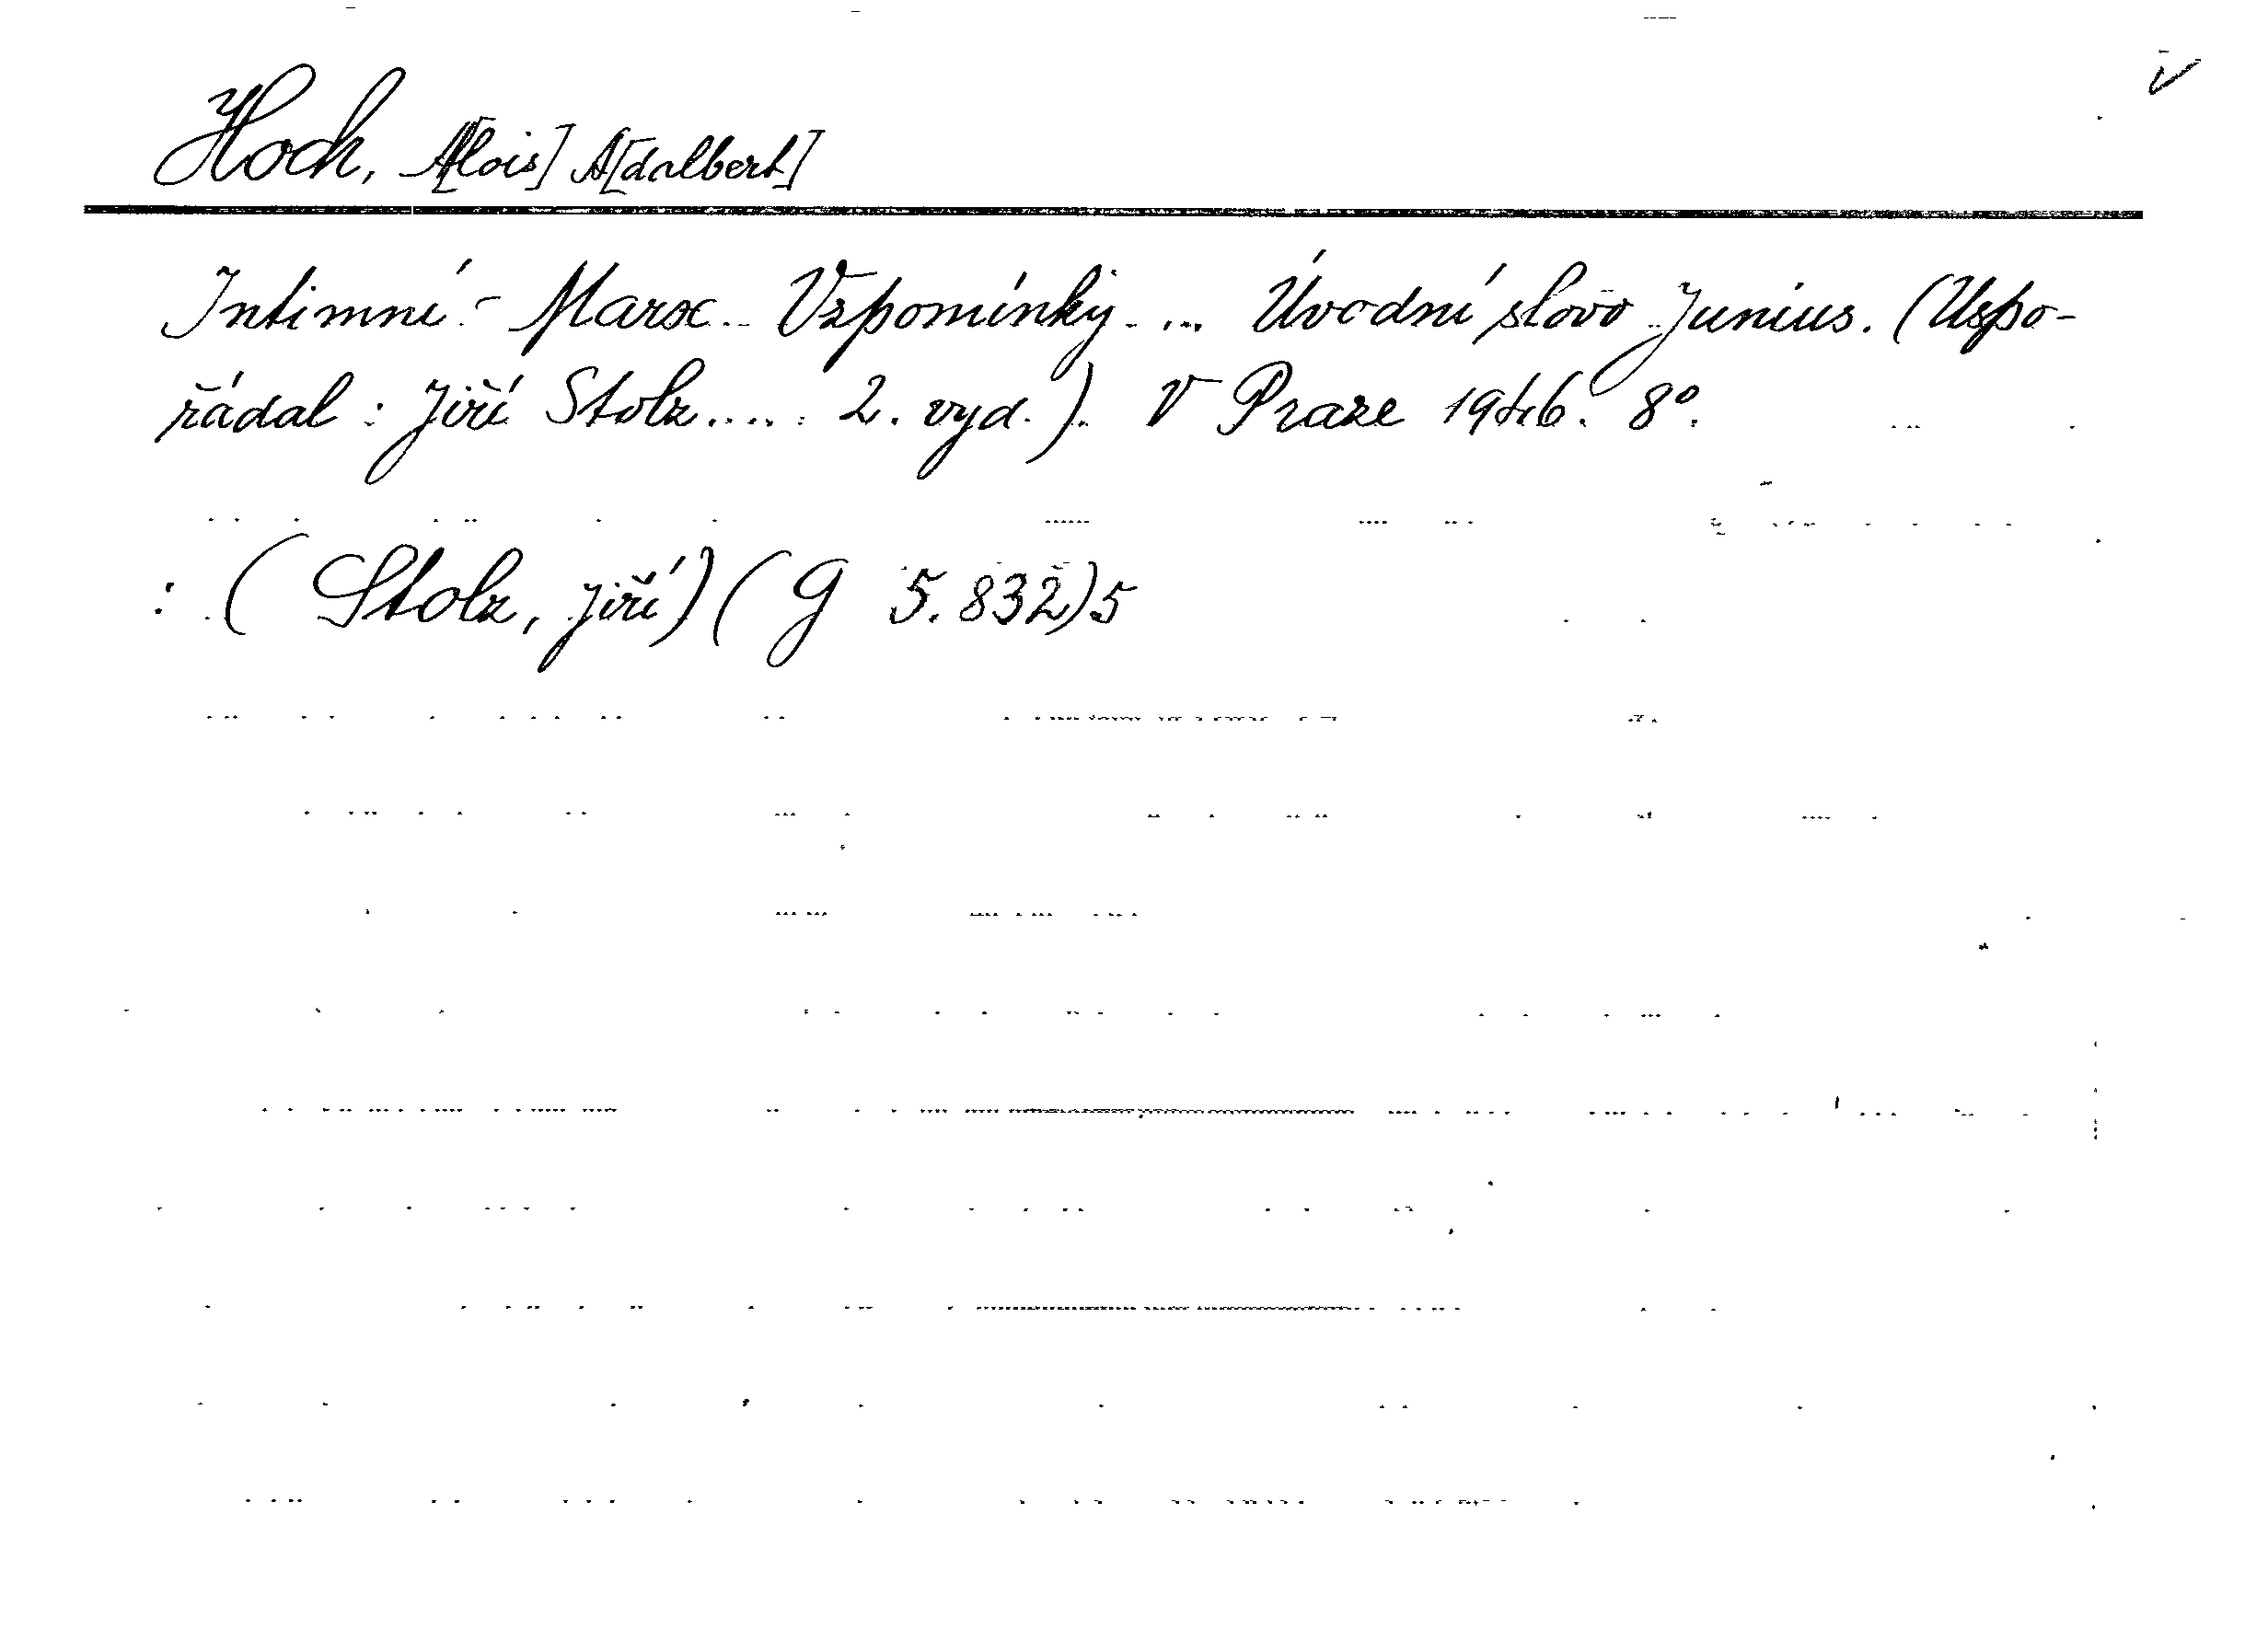 Hoch, A[lois] A[dalbert]
Intimní - Marx. Vzpomínky. ... Úvodní slovo Junius. (Uspo-
řádal: Jiří Stolz..... 2. vyd.). V Praze 1946. 8°.
: (Stolz, Jiří) (G 5.832)5